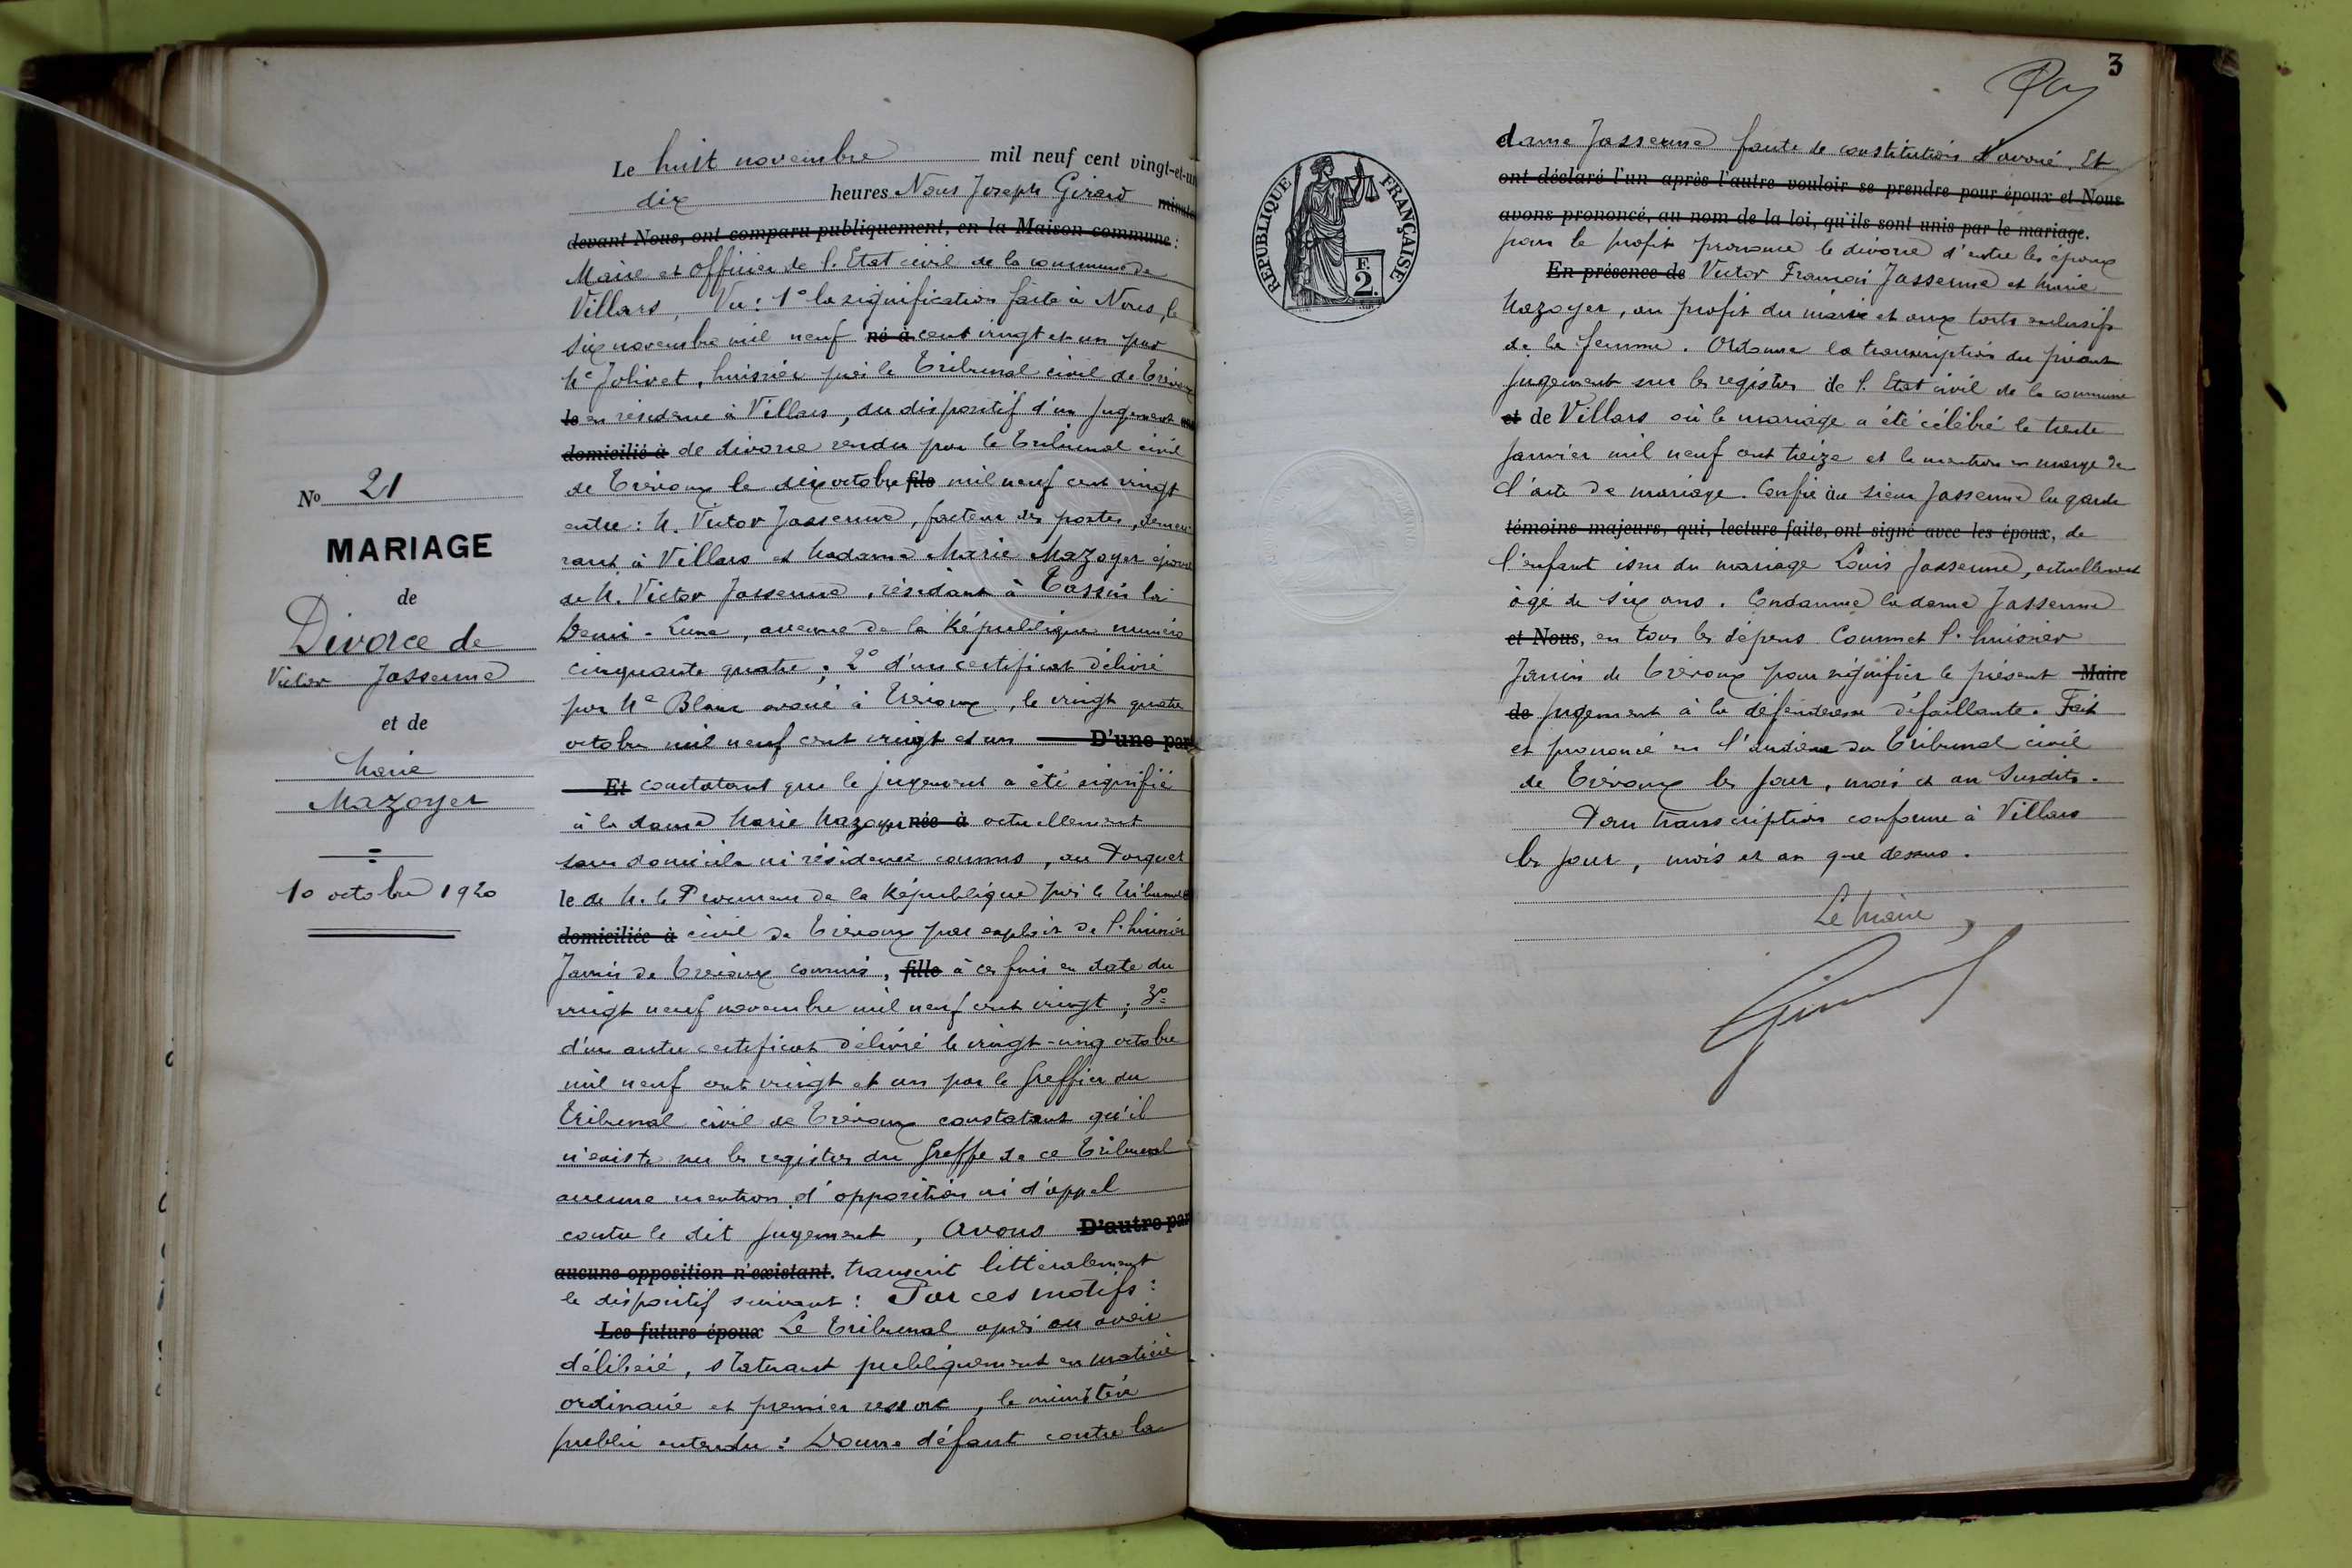 Le huit novembre mil neuf cent vingt-et-un
dix heures Nous Joseph Girard minute
devant Nous, ont comparu publiquement, en la Maison commune :
Maire et officier de l'Etat civil de la commune de
Villars, Vu : 1° la signification faite à Nous, le
six novembre mil neuf né à cent vingt et un par
Me Jolivet, huissier près le Tribunal civil de Trévoux
le en résidence à Villars, du dispositif d'un jugement
domicilié à de divorce rendu par le Tribunal civil
de Trévoux le dix octobre fils mil neuf cent vingt
entre : M. Victor Josserand, facteur des postes, demeu
rant à Villars et Madame Marie Mazoyer épouse
de M. Victor Josserand, résidant à Tassin la
Demi-Lune, avenue de la République numéro
cinquante quatre ; 2° d'un certificat délivré
par Me Blanc avoué à Trévoux, le vingt quatre
octobre mil neuf cent vingt et un D'une part
Et constatant que le jugement a été signifié
à la dame Marie Mazoyer née à actuellement
sans domicile ni résidence connus, au Parquet
le de M. le Procureur de la République près le Tribunal
domiciliée à civil de Trévoux par exploit de l'huissier
Janin de Trévoux commis, fille à ces fins en date du
vingt neuf novembre mil neuf cent vingt ; 3°
d'un autre certificat délivré le vingt-cinq octobre
mil neuf cent vingt et un par le Greffier du
Tribunal civil de Trévoux constatant qu'il
n'existe sur les registres du Greffe de ce Tribunal
aucune mention d'opposition ni d'appel
contre le dit jugement, Avons D'autre part
aucune opposition n'existant. transcrit littéralement
le dispositif suivant : Par ces motifs :
Les futurs époux Le Tribunal après en avoir
délibéré, statuant publiquement en matière
ordinaire et premier ressort, le ministère
public entendu : Donne défaut contre la
No 21
MARIAGE
de
Divorce de
Victor Josserand
et de
Marie
Mazoyer
10 octobre 1920
3
dame Josserand faute de constitution d'avoué. Et
ont déclaré l'un après l'autre vouloir se prendre pour époux et Nous
avons prononcé, au nom de la loi, qu'ils sont unis par le mariage.
pour le profit prononce le divorce d'entre les époux
En présence de Victor François Josserand et Marie
Mazoyer, au profit du mari et aux torts exclusifs
de la femme. Ordonne la transcription du présent
jugement sur les registres de l'Etat civil de la commune
et de Villars où le mariage a été célébré le trente
janvier mil neuf cent treize et la mention en marge de
l'acte de mariage. Confie au sieur Josserand la garde
témoins majeurs, qui, lecture faite, ont signé avec les époux, de
l'enfant issu du mariage Louis Josserand, actuellement
âgé de six ans. Condamne la dame Josserand
et Nous, en tous les dépens Commet l'huissier
Janin de Trévoux pour signifier le présent Maire
de jugement à la défenderesse défaillante. Fait
et prononcé en l'audience du Tribunal civil
de Trévoux les jour, mois et an susdits.
Pour transcription conforme à Villars
les jour, mois et an que dessus.
Le Maire,
RÉPUBLIQUE FRANÇAISE
F.
2.